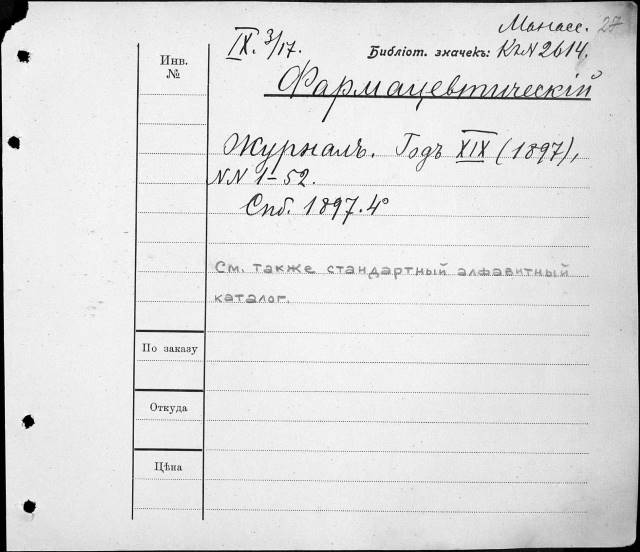 Манасс. 27
IX. 3/17.
Библіот. значекъ: К2N2614.
Инв. №
Фармацевтическій
Журналъ. Годъ XIX (1897),
NN 1-52.
Спб. 1897. 4°
См. также стандартный алфавитный
каталог.
По заказу
Откуда
Цѣна